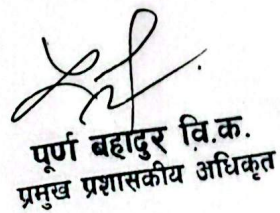 पूर्ण बहादुर वि.क.
प्रमुख प्रशासकीय अधिकृत